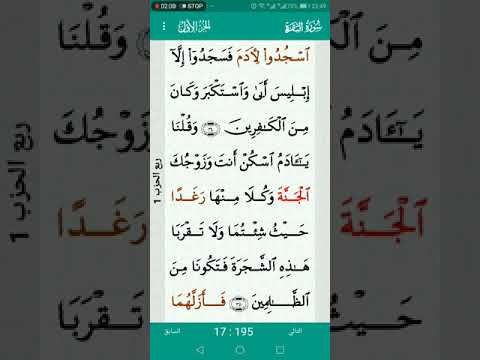 02:09 STOP
23:49
الجزء الأول
سورة البقرة
ٱسْجُدُوا۟ لِـَٔادَمَ فَسَجَدُوٓا۟ إِلَّآ
إِبْلِيسَ أَبَىٰ وَٱسْتَكْبَرَ وَكَانَ
مِنَ ٱلْكَـٰفِرِينَ ٣٤ وَقُلْنَا
يَـٰٓـَٔادَمُ ٱسْكُنْ أَنتَ وَزَوْجُكَ
ٱلْجَنَّةَ وَكُلَا مِنْهَا رَغَدًا
حَيْثُ شِئْتُمَا وَلَا تَقْرَبَا
هَـٰذِهِ ٱلشَّجَرَةَ فَتَكُونَا مِنَ
ٱلظَّـٰلِمِينَ ٣٥ فَأَزَلَّهُمَا
ربع الحزب 1
التالي
17 : 195
السابق